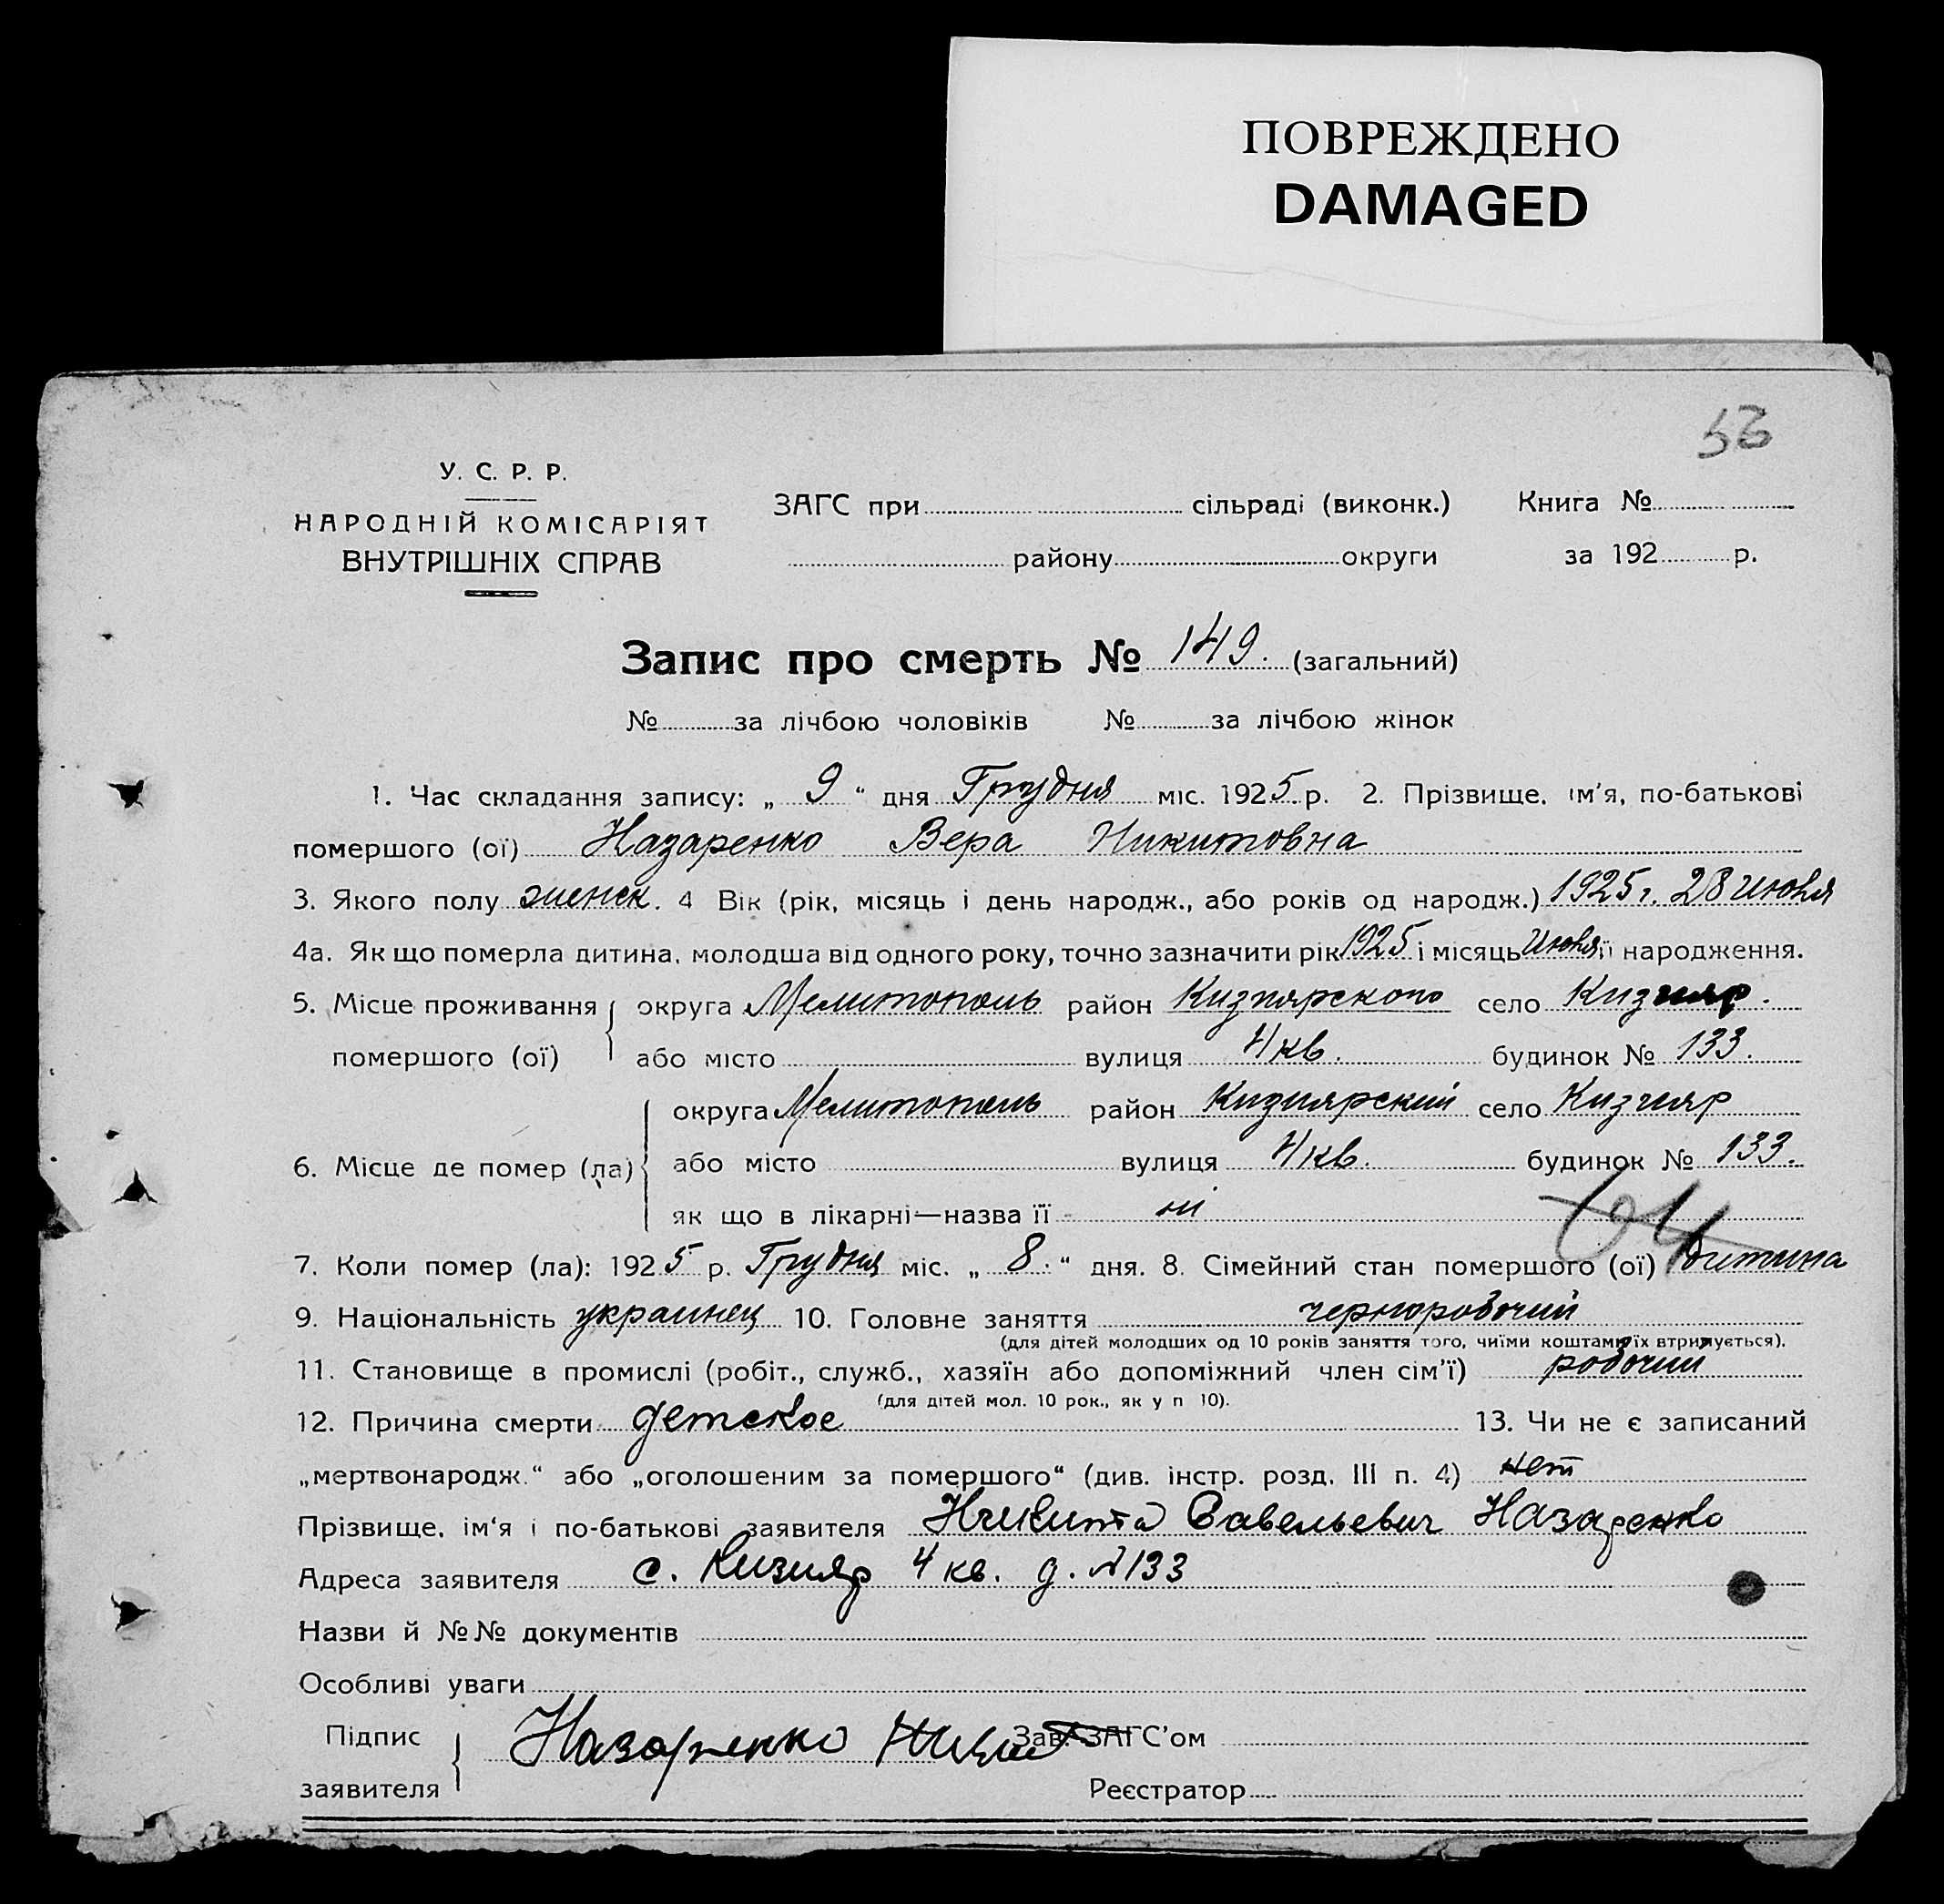 ПОВРЕЖДЕНО
DAMAGED
53
У. С. Р. Р.
НАРОДНІЙ КОМІСАРІЯТ
ВНУТРІШНІХ СПРАВ
ЗАГС при сільраді (виконк.) Книга №
району округи за 192 р.
Запис про смерть № 149. (загальний)
№ за лічбою чоловіків № за лічбою жінок
1. Час складання запису: „ 9 “ дня Грудня міс. 1925 р. 2. Прізвище, ім'я, по-батькові
помершого (ої) Назаренко Вера Никитовна
3. Якого полу женск. 4 Вік (рік, місяць і день народж., або років од народж.) 1925 г. 28 июля
4а. Як що померла дитина, молодша від одного року, точно зазначити рік 1925 і місяць Июля її народження.
5. Місце проживання округа Мелитополь район Кизиярского село Кизияр.
помершого (ої) або місто вулиця 4 кв. будинок № 133.
округа Мелитополь район Кизиярский село Кизияр
6. Місце де помер (ла) або місто вулиця 4 кв. будинок № 133.
як що в лікарні—назва її ні
7. Коли помер (ла): 1925 р. Грудня міс. „ 8. “ дня. 8. Сімейний стан помершого (ої) дитина
9. Національність украинец 10. Головне заняття черноробочий
(для дітей молодших од 10 років заняття того, чиїми коштами їх втримується).
11. Становище в промислі (робіт., служб., хазяїн або допоміжний член сім'ї) робочий
(для дітей мол. 10 рок., як у п 10).
12. Причина смерти детское 13. Чи не є записаний
„мертвонародж.“ або „оголошеним за помершого“ (див. інстр. розд. III п. 4) нет
Прізвище, ім'я і по-батькові заявителя Никита Савельевич Назаренко
Адреса заявителя с. Кизияр 4 кв. д. № 133
Назви й №№ документів
Особливі уваги
Підпис Назаренко Зав. ЗАГС'ом
заявителя Реєстратор